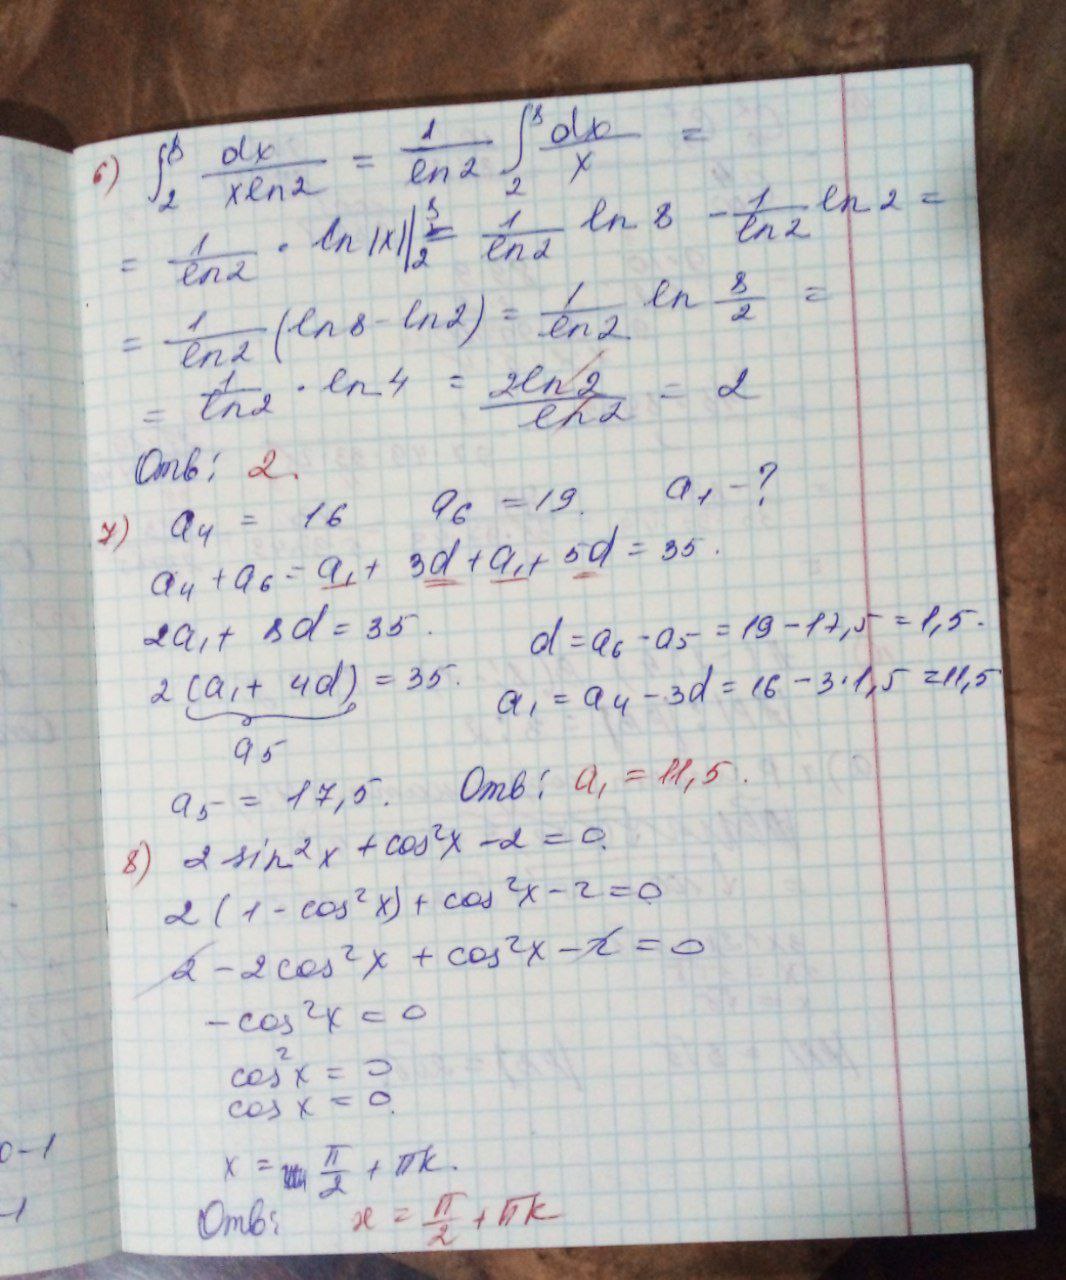 6) ∫₂⁸ dx/(x ln2) = 1/ln2 ∫₂⁸ dx/x =
= 1/ln2 · ln|x| |₂⁸ = 1/ln2 ln 8 - 1/ln2 ln 2 =
= 1/ln2 (ln 8 - ln 2) = 1/ln2 ln 8/2 =
= 1/ln2 · ln 4 = 2ln2/ln2 = 2
Отв: 2.
7) a₄ = 16 a₆ = 19. a₁ - ?
a₄ + a₆ = a₁ + 3d + a₁ + 5d = 35.
2a₁ + 8d = 35.
d = a₆ - a₅ = 19 - 17,5 = 1,5.
2(a₁ + 4d) = 35.
a₁ = a₄ - 3d = 16 - 3·1,5 = 11,5
a₅
a₅ = 17,5. Отв: a₁ = 11,5.
8) 2 sin²x + cos²x - 2 = 0.
2(1 - cos²x) + cos²x - 2 = 0
2 - 2cos²x + cos²x - 2 = 0
- cos²x = 0
cos²x = 0
cos x = 0.
x = π/2 + πk.
Отв: x = π/2 + πk
0-1
-1